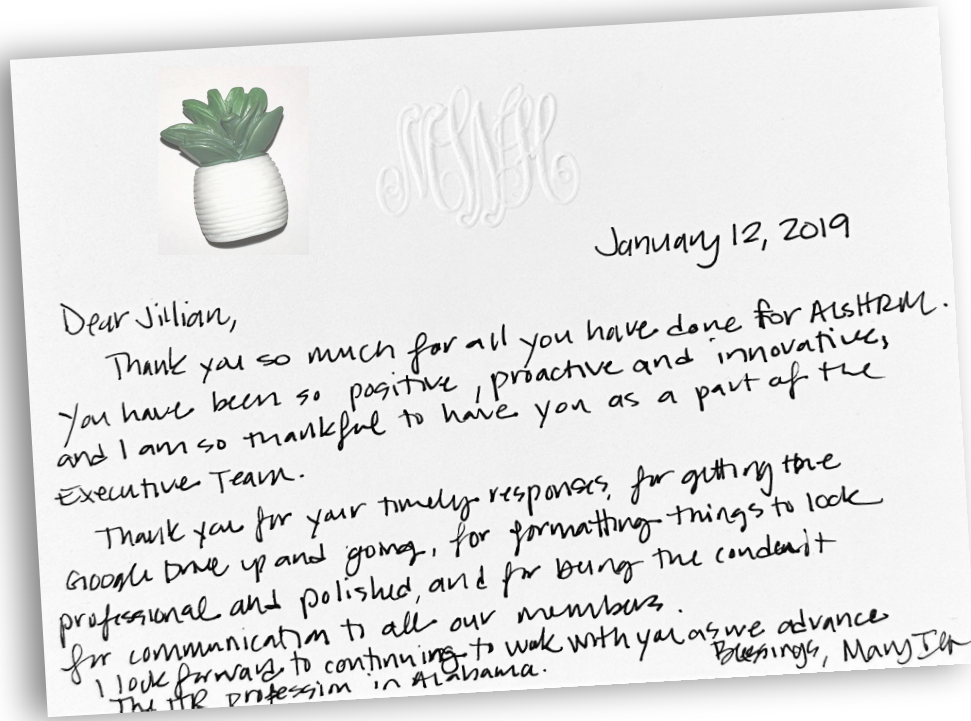 January 12, 2019
Dear Jillian,
Thank you so much for all you have done for ALSHRM.
You have been so positive, proactive and innovative,
and I am so thankful to have you as a part of the
Executive Team.
Thank you for your timely responses, for getting the
Google Drive up and going, for formatting things to look
professional and polished, and for being the conduit
for communication to all our members.
I look forward to continuing to work with you as we advance
the HR profession in Alabama.
Blessings, Mary